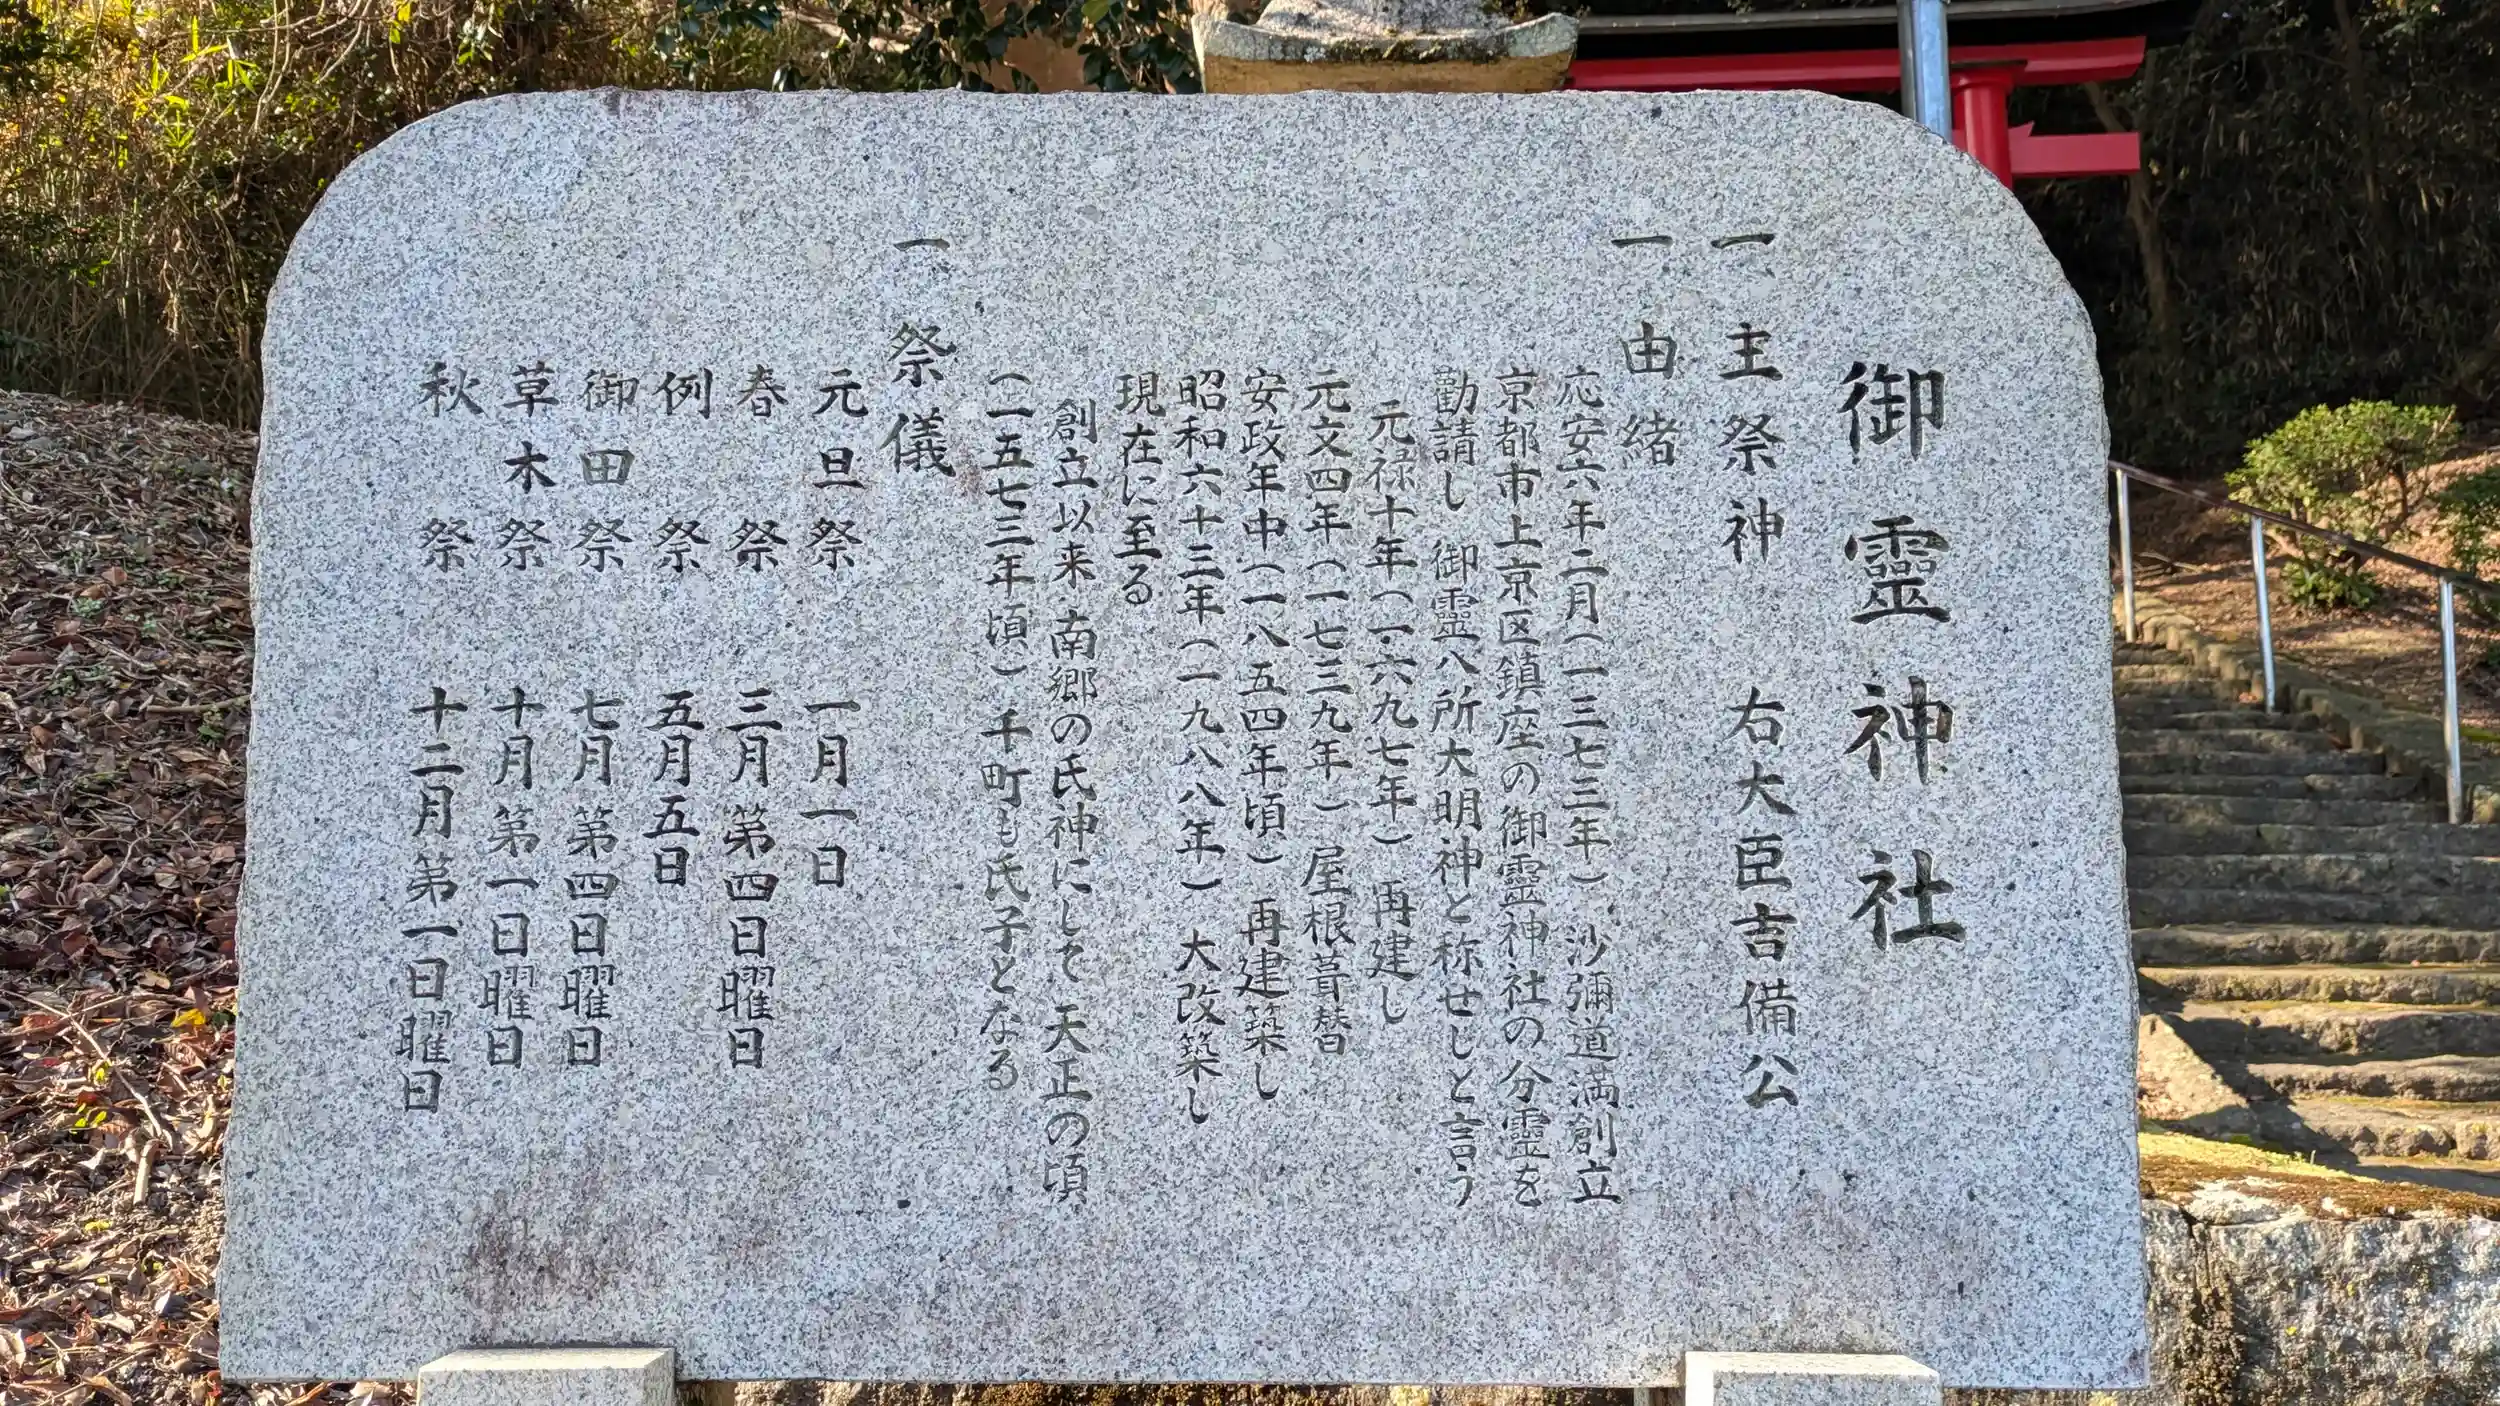 御靈神社
一 主祭神 右大臣吉備公
一 由緒
応安六年二月(一三七三年) 沙彌道満創立
京都市上京区鎮座の御靈神社の分靈を
勸請し 御靈八所大明神と称せしと言う
元禄十年(一六九七年) 再建し
元文四年(一七三九年) 屋根葺替
安政年中(一八五四年頃) 再建築し
昭和六十三年(一九八八年) 大改築し
現在に至る
創立以来 南郷の氏神にして 天正の頃
(一五七三年頃) 千町も氏子となる
一 祭儀
元旦祭 一月一日
春祭 三月第四日曜日
例祭 五月五日
御田祭 七月第四日曜日
草木祭 十月第一日曜日
秋祭 十二月第一日曜日